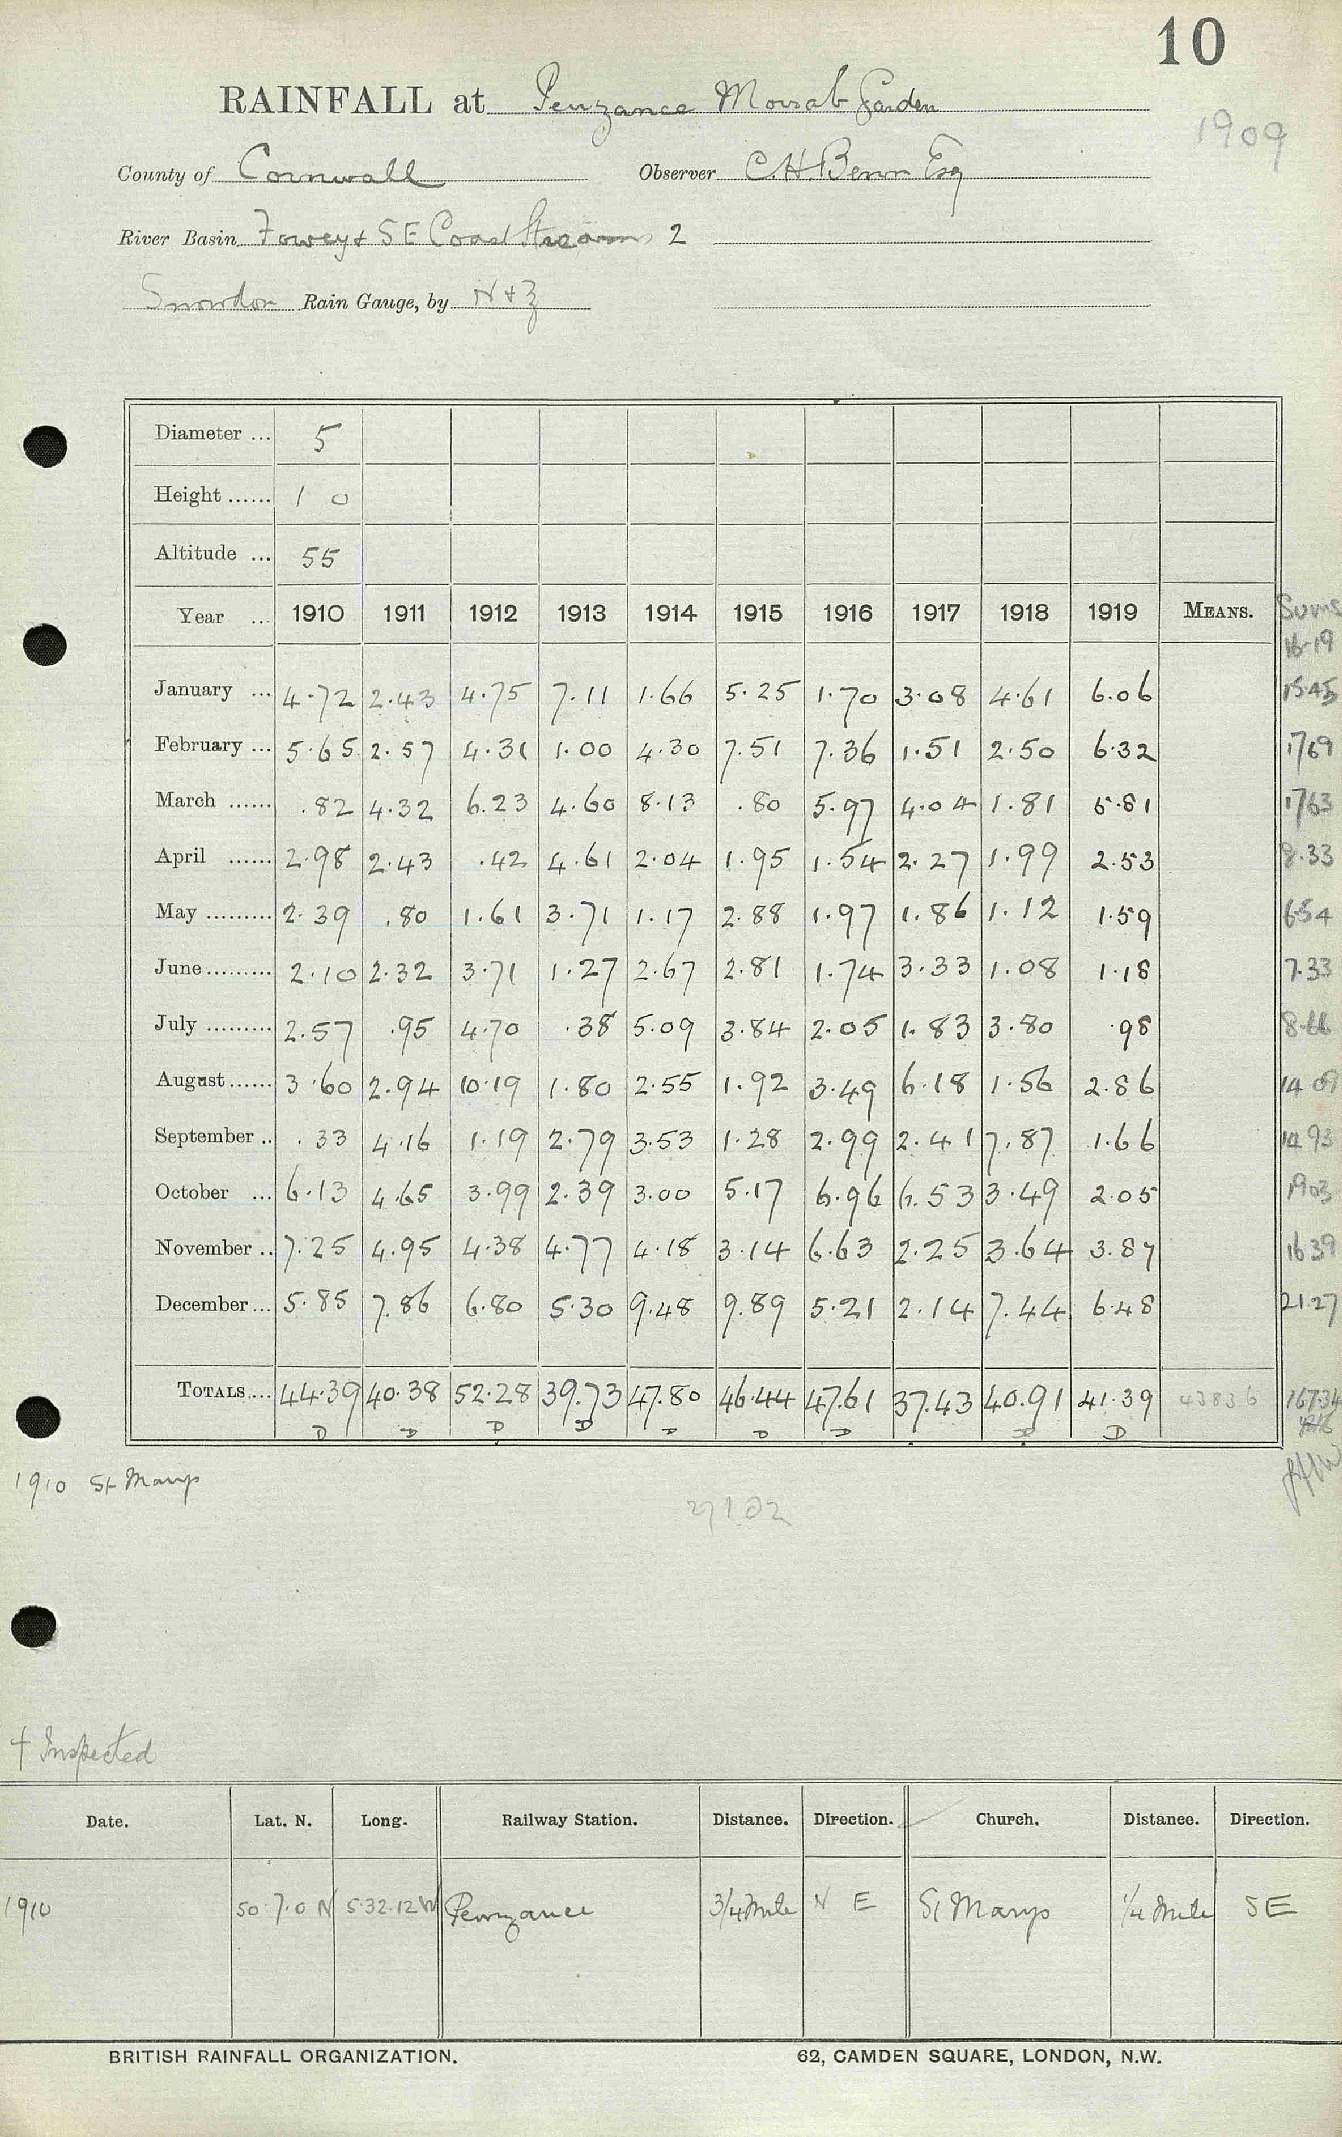 10
RAINFALL at Penzance Morrab Garden
1909
County of Cornwall Observer C.H. Benn Esq
River Basin Fowey & SE Coast Streams 2
Snowdon Rain Gauge, by N & Z
Diameter ... 5
Height ...... 1 0
Altitude ... 55
Year ... 1910 1911 1912 1913 1914 1915 1916 1917 1918 1919 MEANS. Sums
16-19
January ... 4.72 2.43 4.75 7.11 1.66 5.25 1.70 3.08 4.61 6.06 15.45
February ... 5.65 2.57 4.31 1.00 4.30 7.51 7.36 1.51 2.50 6.32 1769
March ...... .82 4.32 6.23 4.60 8.13 .80 5.97 4.04 1.81 5.81 1763
April ...... 2.98 2.43 .42 4.61 2.04 1.95 1.54 2.27 1.99 2.53 8.33
May ......... 2.39 .80 1.61 3.71 1.17 2.88 1.97 1.86 1.12 1.59 6.54
June ......... 2.10 2.32 3.71 1.27 2.67 2.81 1.74 3.33 1.08 1.18 7.33
July ......... 2.57 .95 4.70 .38 5.09 3.84 2.05 1.83 3.80 .98 8.66
August ...... 3.60 2.94 10.19 1.80 2.55 1.92 3.49 6.18 1.56 2.86 14 09
September .. .33 4.16 1.19 2.79 3.53 1.28 2.99 2.41 7.87 1.66 14 93
October ... 6.13 4.65 3.99 2.39 3.00 5.17 6.96 6.53 3.49 2.05 1903
November .. 7.25 4.95 4.38 4.77 4.18 3.14 6.63 2.25 3.64 3.87 16 39
December ... 5.85 7.86 6.80 5.30 9.48 9.89 5.21 2.14 7.44 6.48 21.27
TOTALS ... 44.39 40.38 52.28 39.73 47.80 46.44 47.61 37.43 40.91 41.39 43836 167.34
D D D D D D D D D
1910 St Marys
† Inspected
Date. Lat. N. Long. Railway Station. Distance. Direction. Church. Distance. Direction.
1910 50.7.0 N 5.32.12 W Penzance 3/4 Mile N E St Marys 1/4 Mile S E
BRITISH RAINFALL ORGANIZATION. 62, CAMDEN SQUARE, LONDON, N.W.